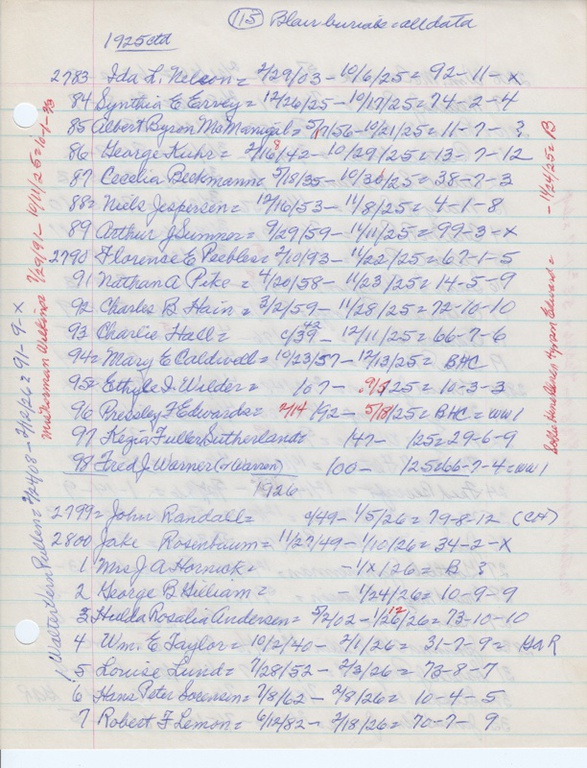 (115) Blair burials = all data
1925 ctd
2783 Ida L. Nelson = 2/29/03 - 10/6/25 = 92-11-x
84 Synthia E Ervey = 12/26/25 - 10/17/25 = 74-2-4
85 Albert Byron McManigal = 5/17/56 - 10/21/25 = 11-7- ?
86 George Kuhr = 2/168/42 - 10/29/25 = 13-7-12
87 Cecelia Beckmann = 5/18/35 - 10/30/25 = 38-7-3
88 = Niels Jespersen = 12/16/53 - 11/8/25 = 4-1-8
89 Arthur J Sumner = 9/29/59 - 11/11/25 = 99-3-x
2790 Florence E Peebler = 2/10/93 - 11/22/25 = 67-1-5
91 Nathan A Pike = 4/20/58 - 11/23/25 = 14-5-9
92 Charles B Hain = 3/2/59 - 11/28/25 = 72-10-10
93 Charlie Hall = c/39 42 - 12/11/25 = 66-7-6
94 = Mary E Caldwell = 10/23/57 - 12/13/25 = BHC
95 = Ethyle I Wilder = 107 - 9/8/25 = 10-3-3
96 Pressley F Edwards = 2/14/92 - 5/18/25 = BHC = WW1
97 Kezia Fuller Sutherland = 147 - 125 = 29-6-9
98 Fred J Warner (or Warren) 100 - 125 = 66-7-4 = WW1
1926
2799 = John Randall = c/49 - 1/5/26 = 79-8-12 (CH)
2800 Jake Rosenbaum = 11/27/49 - 1/10/26 = 34-2-x
1 Mrs J A Hornick = - 1/x/26 = B ?
2 George B Gilliam = - 1/24/26 = 10-9-9
3 Hulda Rosalia Andersen = 5/2/02 - 1/26/26 12 = 73-10-10
4 Wm. E Taylor = 10/2/40 - 2/1/26 = 31-7-9 = GAR
5 Louise Lund = 7/28/52 - 2/3/26 = 73-8-7
6 Hans Peter Sorensen = 7/8/62 - 2/8/26 = 10-4-5
7 Robert F Lemon = 6/12/82 - 2/18/26 = 70-7-9
Walter Vern Pullen = 2/24/08 - 2/12/26 = 91-9-x
7/29/91 - 10/11/25 = 16-1-
- 11/24/25 = B